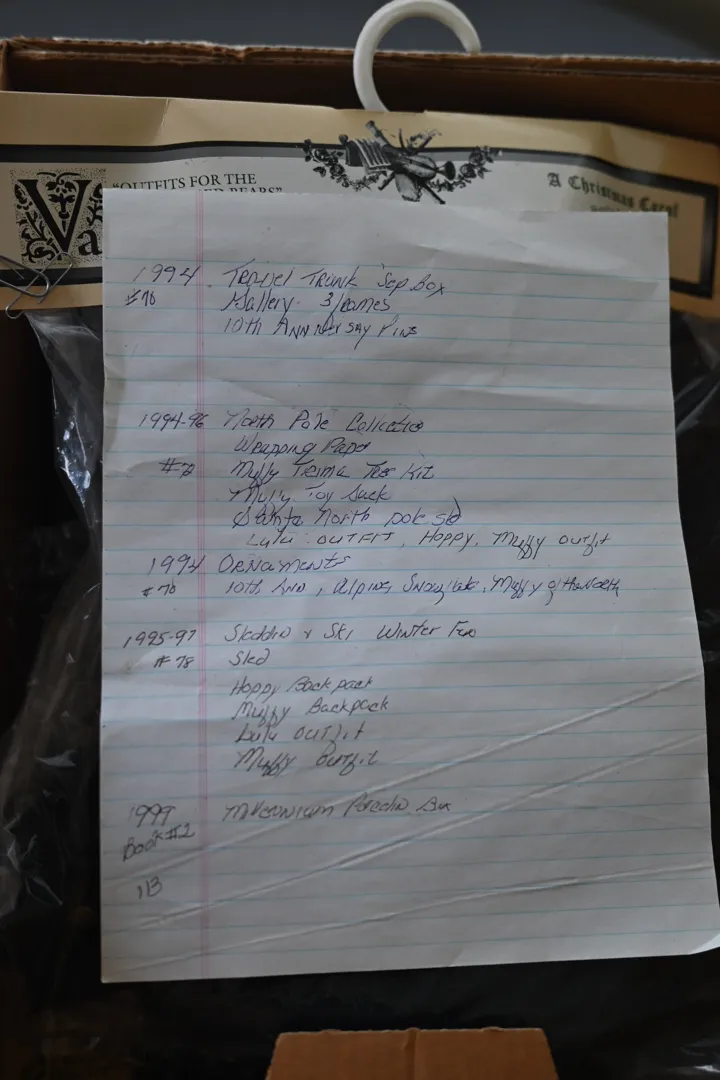 "OUTFITS FOR THE
BEARS"
Va
A Christmas Carol
1994 Travel Trunk Sep Box
#70 Gallery 3 frames
10th Anniversay Pins
1994-96 North Pole Collection
Wrapping Paper
Muffy Trima Tree Kit
Muffy Toy Sack
Santa North pole
Lulu OUTFIT, Hoppy, Muffy outfit
1994 Ornaments
#70 10th Ann, Alpine, Snowflake, Muffy of the North
1995-97 Skaddin & Ski Winter Fun
#78 Sled
Hoppy Backpack
Muffy Backpack
Lulu outfit
Muffy outfit
1999 Millennium Box
Book #2
113